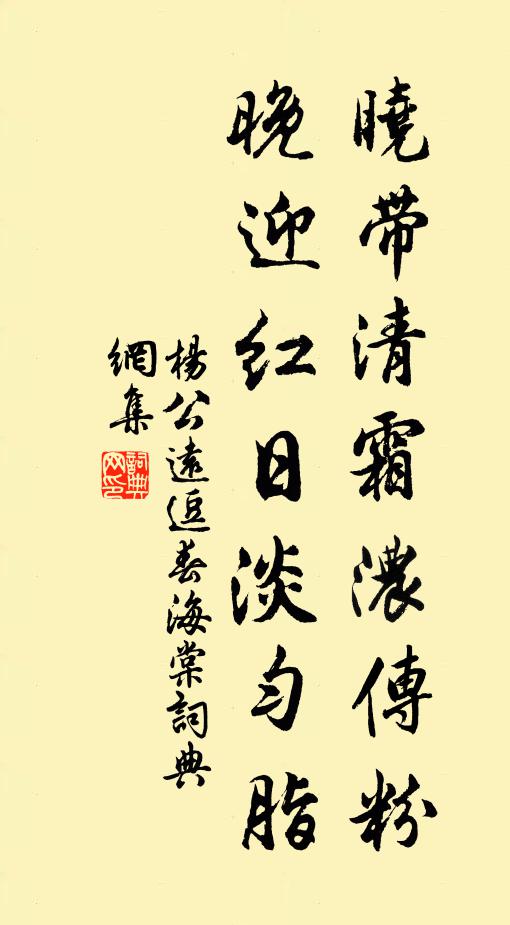 曉帶清霜濃傳粉
晚迎紅日淡勻脂
楊公遠逗春海棠詞典
網集
詞典
网印